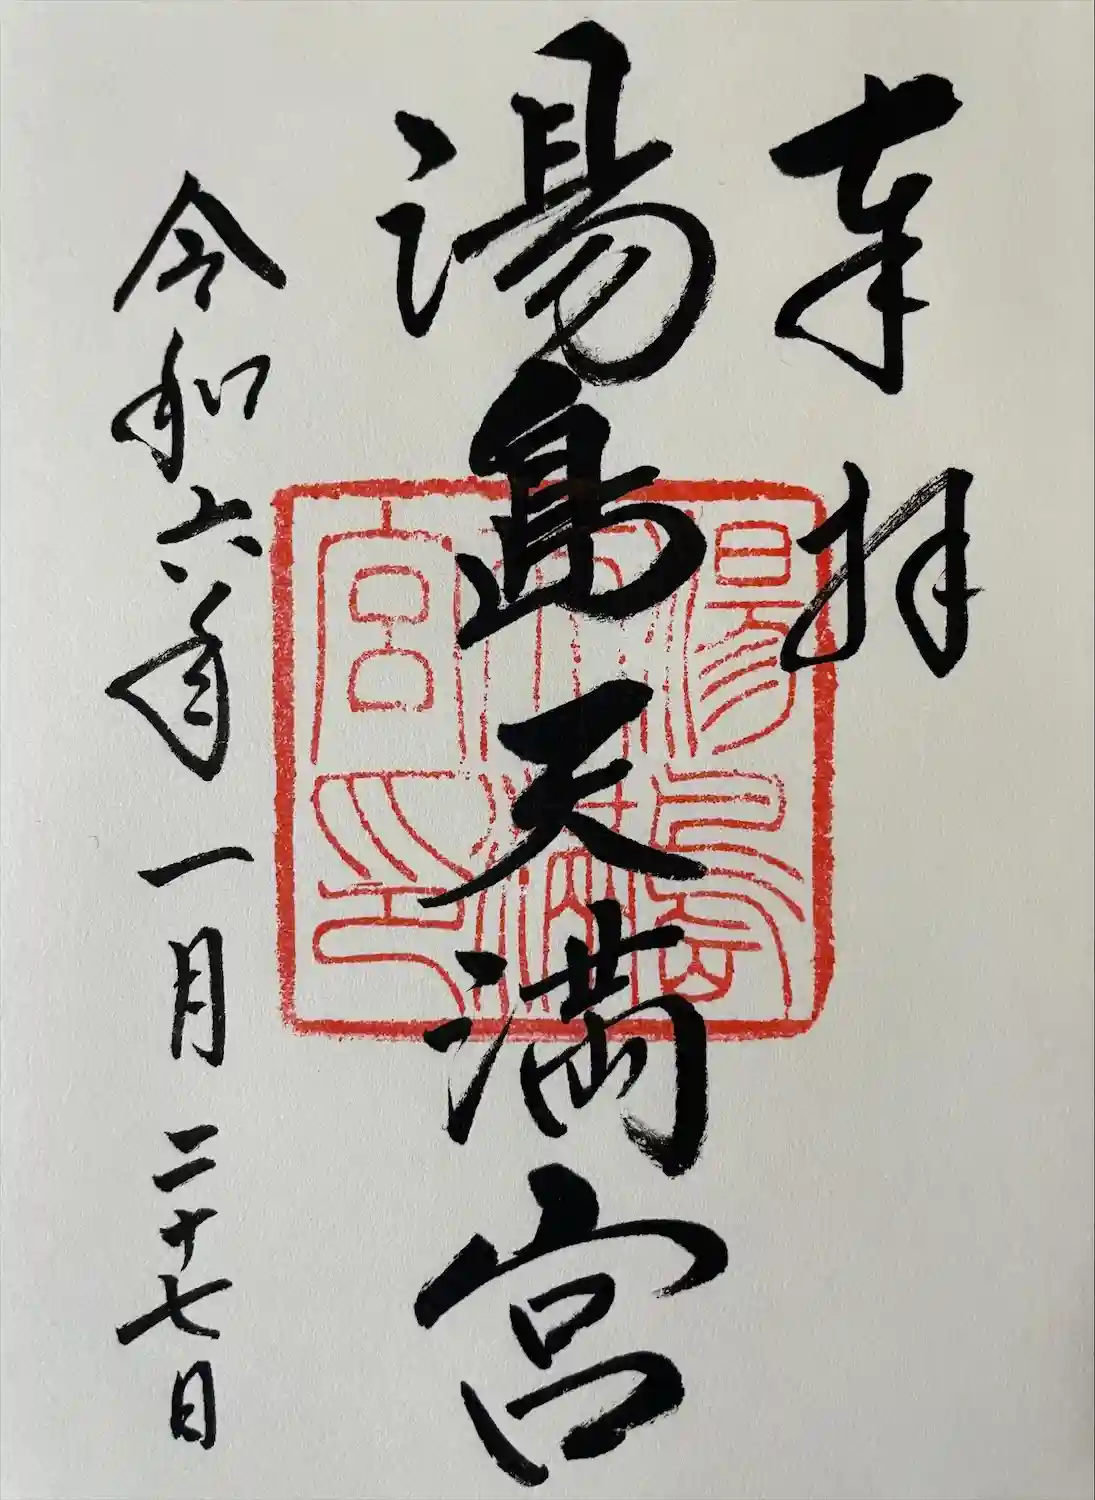 奉拝
湯島天満宮
令和六年一月二十七日
湯島天満宮印